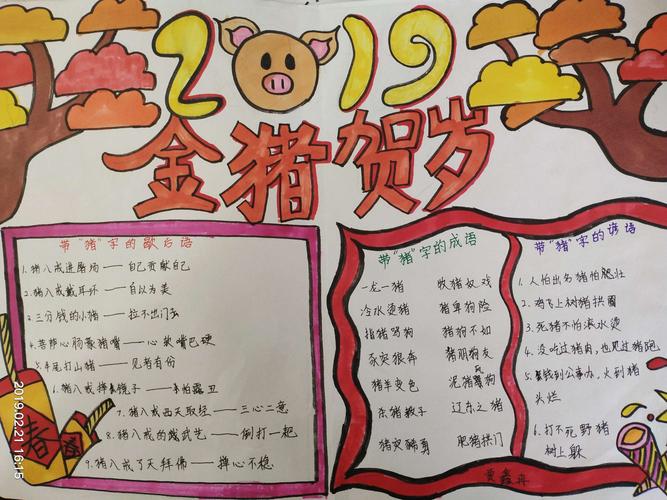 2019
金猪贺岁
带"猪"字的歇后语
1.猪八戒进屠场——自己贡献自己
2.猪八戒戴耳环——自以为美
3.三分钱的小猪——拉不出门去
4.菩萨心肠豪猪嘴——心软嘴巴硬
5.半尾打山猪——见者有份
6.猪八戒拜镜子——怕露丑
7.猪八戒西天取经——三心二意
8.猪八戒的武艺——倒打一耙
9.猪八戒了天拜佛——掸心不稳
春
春
带"猪"字的成语
一龙一猪 牧猪奴戏
冷水烫猪 猪卑狗险
指猪骂狗 猪狗不如
豕突狼奔 猪朋狗友
猪羊变色 泥猪瓦狗
杀猪教子 辽东之猪
猪突豨勇 肥猪拱门
黄鑫冉
带"猪"字的谚语
1.人怕出名猪怕肥壮
2.鸡飞上树猪拱圈
3.死猪不怕滚水烫
4.没吃过猪肉,也见过猪跑
5.钱到公事办,火到猪
头烂
6.打不死野猪
树上歇
2019.02.21 16:15